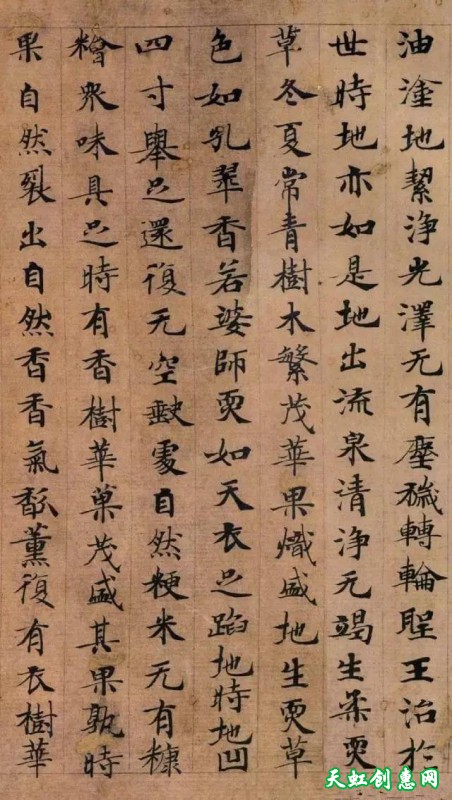 油塗地絜淨光澤无有塵穢轉輪聖王治於
世時地亦如是地出流泉清淨无竭生柔耎
草冬夏常青樹木繁茂華果熾盛地生耎草
色如孔翠香若婆師耎如天衣足蹈地時地凹
四寸舉足還復无空缺處自然粳米无有糠
糩衆味具足時有香樹華菓茂盛其果熟時
果自然裂出自然香香氣馝薰復有衣樹華
天虹创惠网